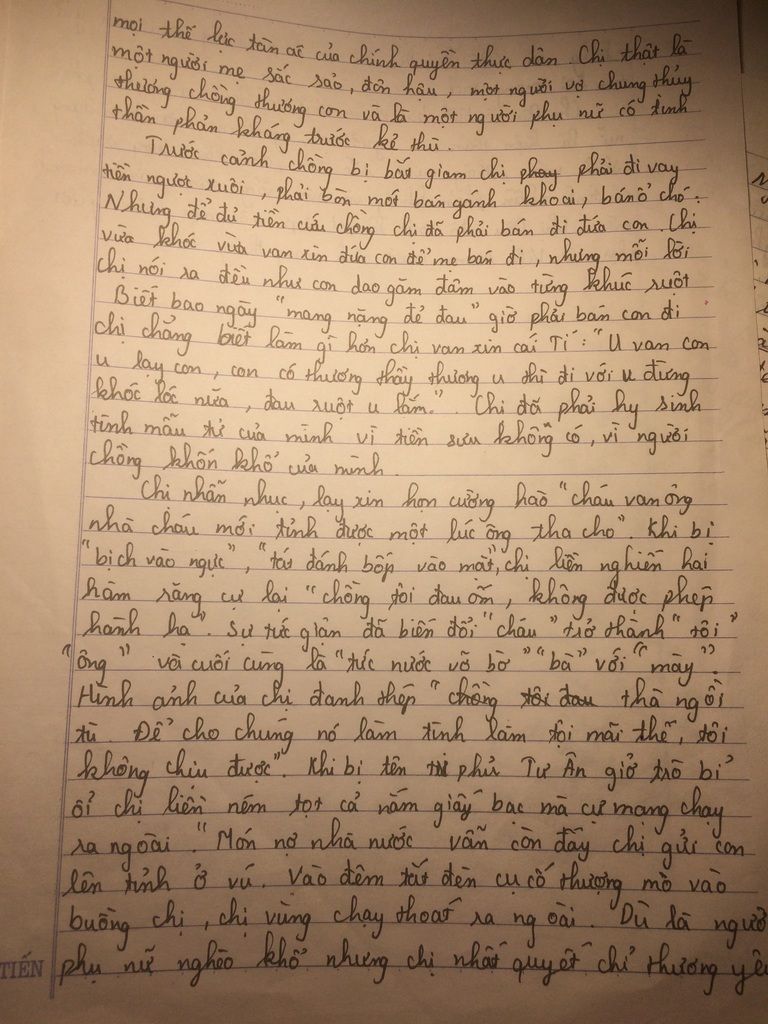 mọi thế lực tàn ác của chính quyền thực dân. Chị thật là
một người mẹ sắc sảo, đôn hậu, một người vợ chung thủy
thương chồng thương con và là một người phụ nữ có tinh
thần phản kháng trước kẻ thù.
Trước cảnh chồng bị bắt giam chị phay phải đi vay
tiền ngược xuôi, phải bòn mót bán gánh khoai, bán ổ chó.
Nhưng để đủ tiền cứu chồng chị đã phải bán đi đứa con. Chị
vừa khóc vừa van xin đứa con để mẹ bán đi, nhưng mỗi lời
chị nói ra đều như con dao găm đâm vào từng khúc ruột
Biết bao ngày "mang nặng đẻ đau" giờ phải bán con đi
chị chẳng biết làm gì hơn chị van xin cái Tí: "U van con
u lạy con, con có thương thầy thương u thì đi với u đừng
khóc lóc nữa, đau ruột u lắm.". Chị đã phải hy sinh
tình mẫu tử của mình vì tiền sưu không có, vì người
chồng khốn khổ của mình.
Chị nhẫn nhục, lạy xin bọn cường hào "cháu van ông
nhà cháu mới tỉnh được một lúc ông tha cho". Khi bị
"bịch vào ngực", "tát đánh bốp vào mặt", chị liền nghiến hai
hàm răng cự lại "chồng tôi đau ốm, không được phép
hành hạ". Sự tức giận đã biến đổi "cháu" trở thành "tôi"
"ông" và cuối cùng là "tức nước vỡ bờ" "bà" với "mày".
Hình ảnh của chị đanh thép "chồng tôi đau thà ngồi
tù. Để cho chúng nó làm tình làm tội mãi thế, tôi
không chịu được". Khi bị tên tri phủ Tư Ân giở trò bỉ
ổi chị liền ném tọt cả nắm giấy bạc mà cự mang chạy
ra ngoài. "Món nợ nhà nước vẫn còn đấy chị gửi con
lên tỉnh ở vú. Vào đêm tắt đèn cụ cố thượng mò vào
buồng chị, chị vùng chạy thoát ra ngoài. Dù là ngườ
phụ nữ nghèo khổ nhưng chị nhất quyết chỉ thương yê
TIẾN